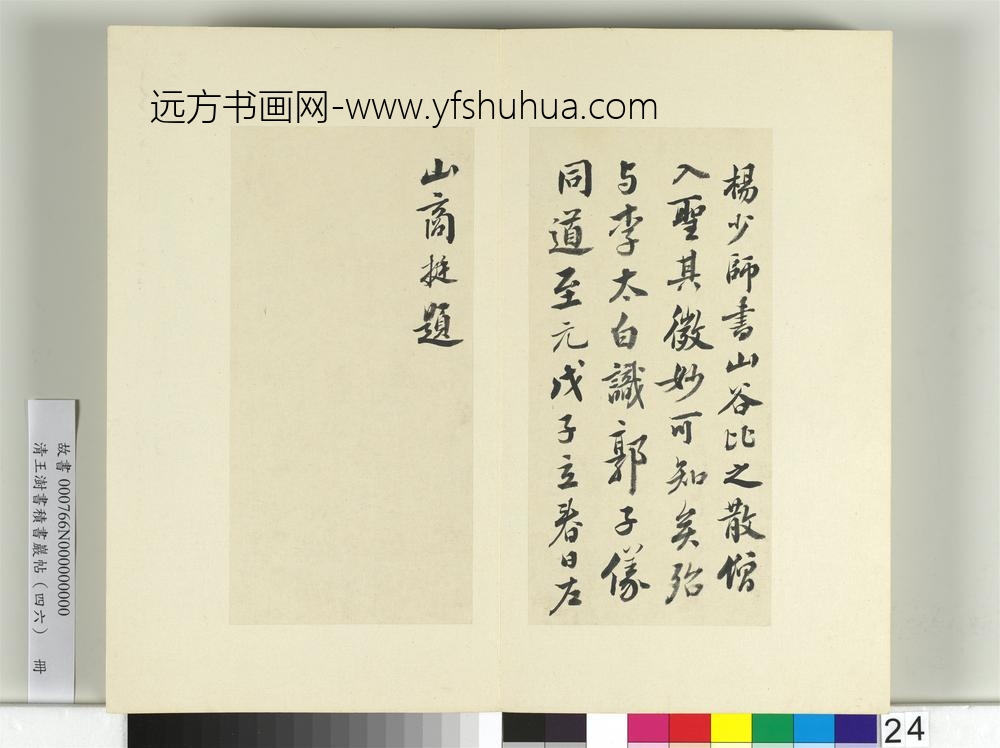 远方书画网-www.yfshuhua.com
楊少師書山谷比之散僧
入聖其微妙可知矣殆
与李太白識郭子儀
同道至元戊子立春日左
山商挺題
故書 000766N000000000
清王澍書積書巖帖(四六) 冊
24